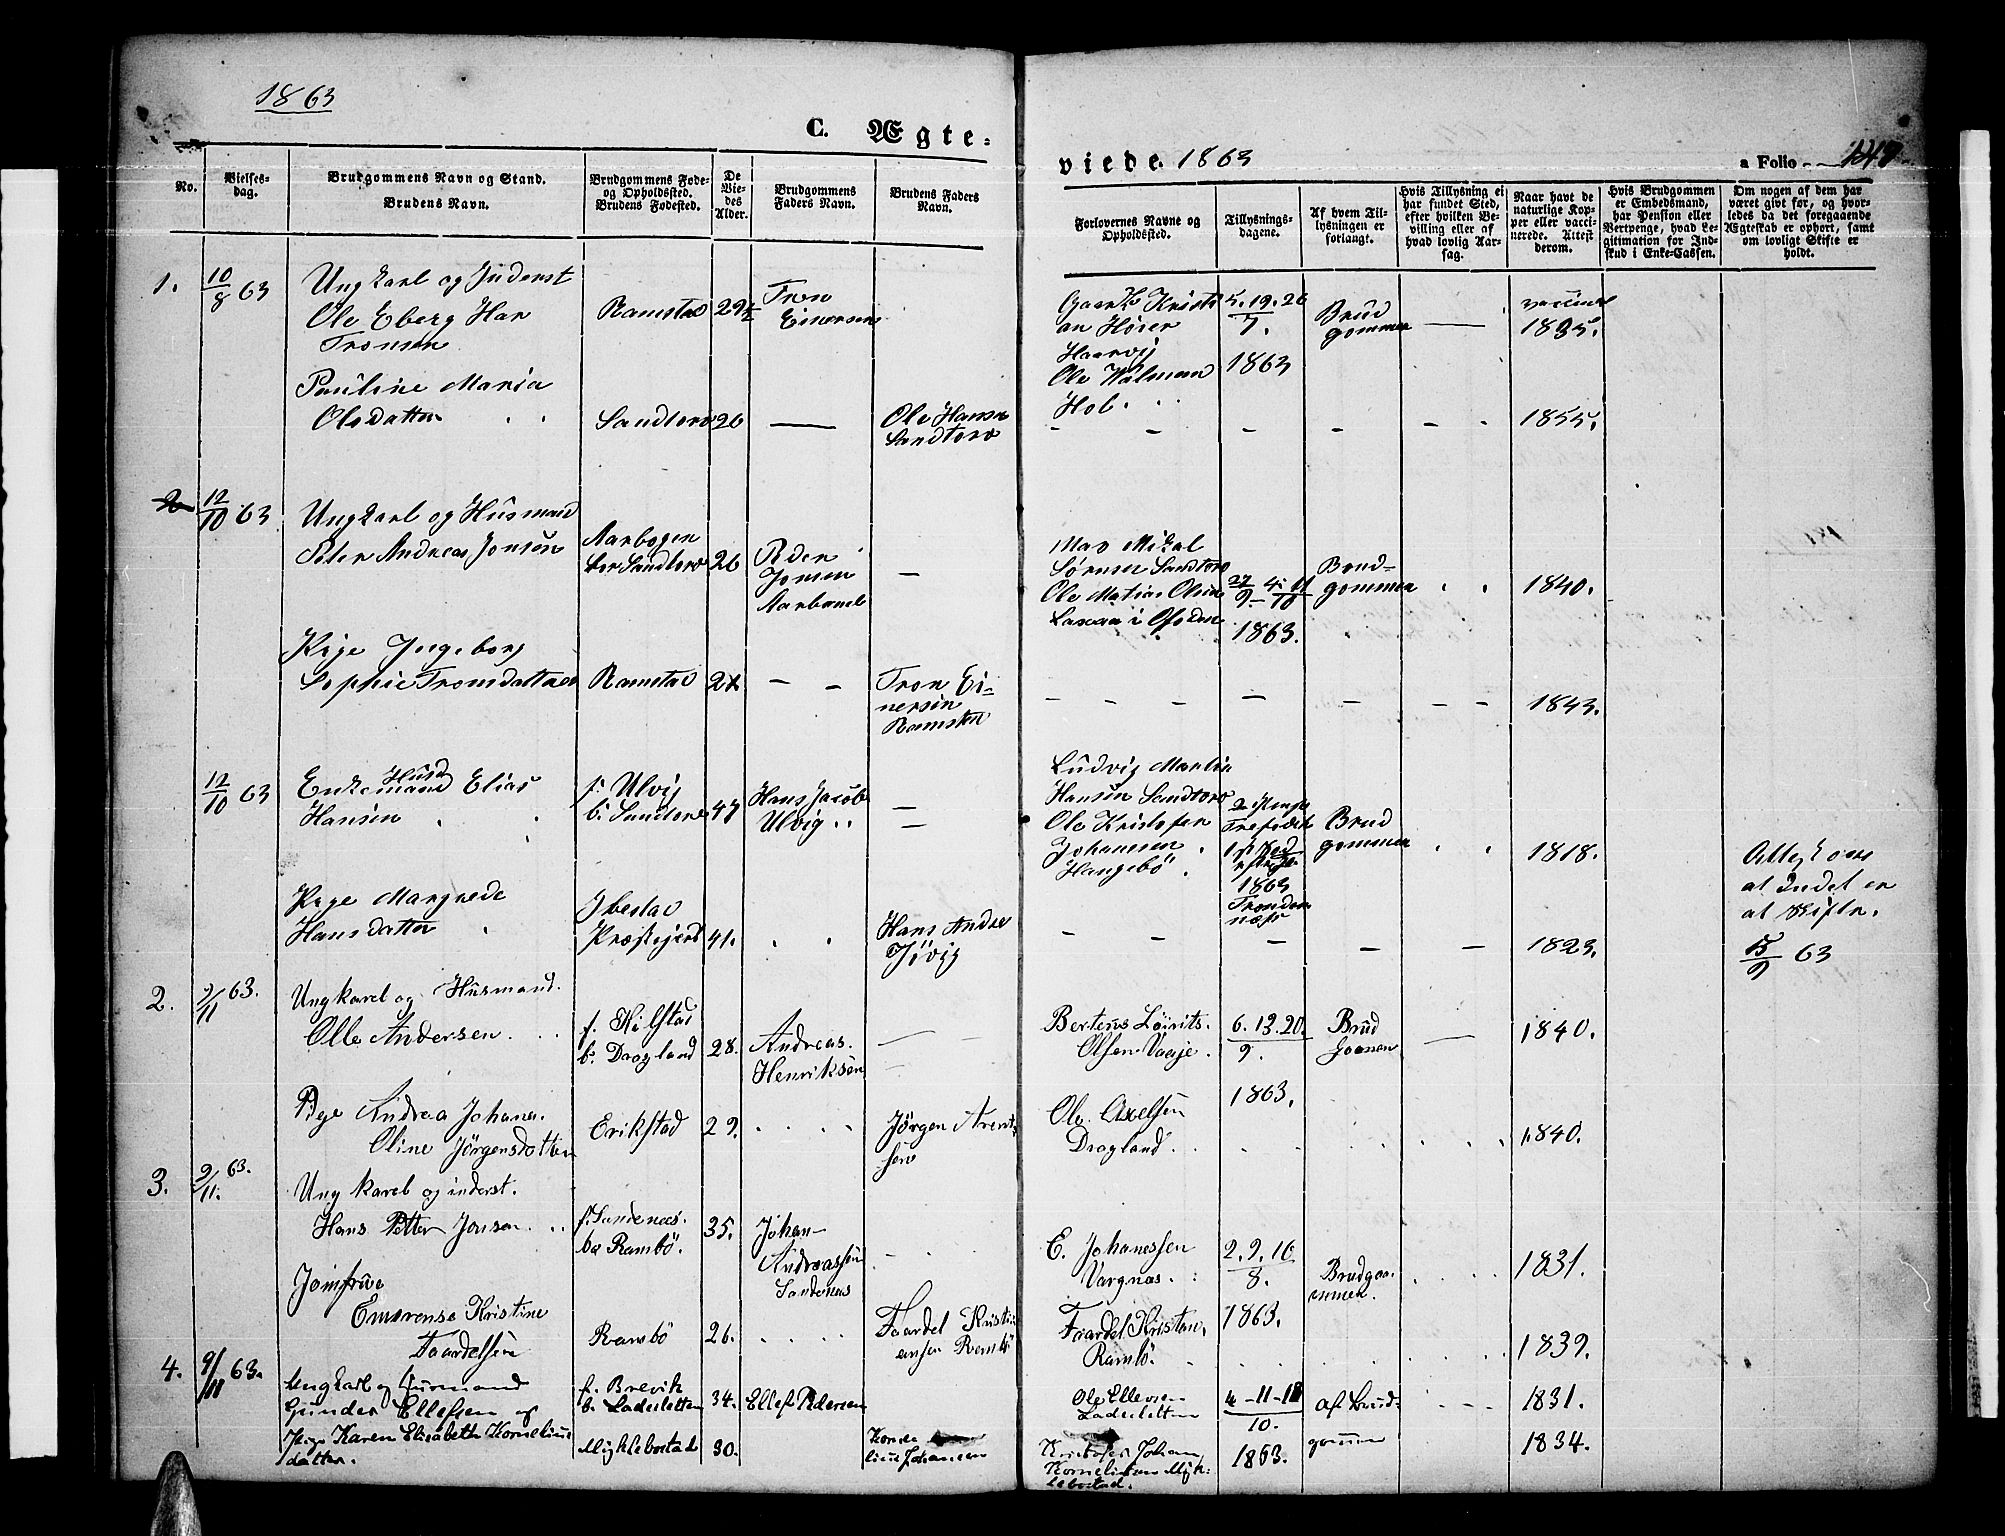 1863
C. Ægte-
viede. 1863
a Folio
No.
Vielses-
dag.
Brudgommens Navn og Stand.
Brudens Navn.
Brudgommens Føde-
og Opholdssted.
Brudens Fødested.
De
Vie-
des
Alder.
Brudgommens
Faders Navn.
Brudens Faders
Navn.
Forlovernes Navne og
Opholdssted.
Tillysnings-
dagene.
Af hvem Til-
lysningen er
forlangt.
Hvis Tillysning ei
har fundet Sted,
efter hvilken Be-
villing eller af
hvad lovlig Aar-
sag.
Naar havt de
naturlige Kop-
per eller vacci-
nerede. Attest
derom.
Hvis Brudgommen
er Embedsmand,
har Pension eller
Vertpenge, hvad Le-
gitimation for Ind-
skud i Enke-Cassen.
Om nogen af dem har
været gift før, og hvor-
ledes da det foregaaende
Ægteskab er ophørt, samt
om lovligt Skifte er
holdt.
1. 10/8 63
Ungkarl og Inderst
Ole Eberg Har
Tronsen
Ramstad 29½
Tron
Einersen
Gaardm Kristi
an Hoier
Haarvig
Ole Halmean
Hol.
5. 19. 26
7.
1863
Brud
gommen
vaccineret
1835.
Pauline Maria
Olsdatter
Sandtorv 26
Ole Hansen
Sandtorv
1855.
2 12/10 63
Ungkarl og Husmand
Peter Andreas Jonsen
Aarbogen
bor Sandtorv 26
Peder
Jonsen
Aarboud
Mas Mikal
Sörnsen Sandtorv
Ole Matias Olsen
Laxaa i Ofoden
27/9 4. 11/10
1863.
Brud-
gommen
1840.
Pige Ingeborg
Sophie Tronsdatter
Ramstad
Tron Ei-
nersen
Ramstad
1843.
12/10 63
Enkemand Husm Elias
Hansen
f: Ulvig
b: Sandtorv 47
Hans Jacob
Ulvig
Ludvig Martin
Hansen Sandtorv
Ole Kristofer
Johannsen
Hangebö
1863
Tronden
næs
Brud
gommen
1818.
Attest om
at Indet er
at skifte.
15/9 63
Pige Margrede
Hansdatter
Ibestad
Præstejerd 41.
Hans Andre
Tjövig
1823.
2. 9/11 63.
Ungkarel og Husmand.
Olle Andersen
f. Kilstad
b. Dragland 28.
Andreas
Henriksen
Bertéus Löirits
Olsen Vaaje.
6. 13. 20.
9.
1863.
Brud
Gommen
1840.
Pige Andrea Johana
Oline Jörgensdatter
Erikstad 29.
Jørgen Arent
sen
Ole Axelsen
Dragland.
1840.
3. 9/11. 63.
Ung karel og inderst.
Hans Petter Jonsen
f. Sandenæs.
bo Rambö. 35.
Johan
Andreassen
Sandenæs
E. Johanessen
Vargnæs.
2. 9. 16
8.
1863.
Brudgo
mmen.
1831.
Jomfrue
Emerense Kristine
Taardelsen
Rambö 26.
Taardel Kristi
ansen Rambö
Taardel Kristian.
Rambö.
1839.
4. 9/11 63.
Ungkarl og Husmand
Gunder Ellefsen og
f. Brevik
b. Ladesletten 34.
Ellef Pedersen
Ole Ellevsen
Ladesletten
4-11-18
10.
1863.
af Brud-
gommen
1831.
Pige Karen Elisabeth Kornelius
datter.
Myklebostad 30.
Korne
lius Johansen
Kristofer Johan
Kornelissen Myk-
lebostad.
1834.